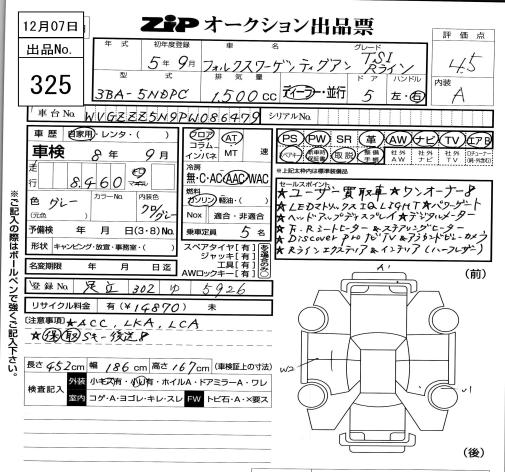 12月07日
出品No.
325
ZIP オークション出品票
評価点
4.5
内装
A
年式 初年度登録 車名 グレード
5年9月 フォルクスワーゲンティグアン TSI Rライン
型式 排気量 ドア ハンドル
3BA-5NDPC 1,500cc ディーラー・並行 5 左・右
車台No. WVGZZZ5N9PW086479 シリアルNo.
車歴 自家用・レンタ・( )
車検 8年9月
走行 8,460 km マイル
外色 グレー カラーNo. 内装色 クロ/グレー
(元色)
予備検 年 月 日(3・8)No.
形状 キャンピング・放送・事務室・( )
名変期限 年 月 日 迄
登録No. 足立 302 ゆ 5926
リサイクル料金 有(¥14870) 未
フロア コラム インパネ
AT MT 速
冷房
無・C・AC AAC WAC
燃料
ガソリン・軽油・( )
Nox 適合・非適合
乗車定員 5名
スペアタイヤ[有]
ジャッキ[有]
工具[有]
AWロックキー[有]
PS PW SR 革 AW ナビ TV エアB
取説 社外AW 社外ナビ 社外TV
※上記太枠内は標準装備品
セールスポイント
★ユーザー買取車★ワンオーナー8
★LEDマトリックスIQ.LIGHT★パワーゲート
★ヘッドアップディスプレイ★デジタルメーター
★F.Rシートヒーター&ステアリングヒーター
★Discover Pro ナビTV&アラウンドビューカメラ
★Rラインエクステリア&インテリア(ハーフレザー)
(注意事項) ★ACC, LKA, LCA
★保 取 Sキー後送8
長さ452cm 幅186cm 高さ167cm (車検証上の寸法)
検査記入 外装 小キズ有・小凹有・ホイルA・ドアミラーA・ワレ
室内 コゲ・A・ヨゴレ・キレ・スレ FW トビ石・A・×要ス
(前)
A1
W2
(後)
※ご記入の際はボールペンで強くご記入下さい。